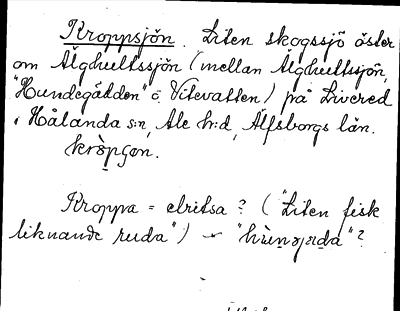 Kroppsjön. Liten skogssjö öster
om Älghultssjön (mellan Älghultssjön,
"Hundegädden" o. Vitevatten) på Livered
i Hålanda s:n, Ale h:d, Älfsborgs län.
Kroppa = elritsa? ("Liten fisk
liknande ruda")